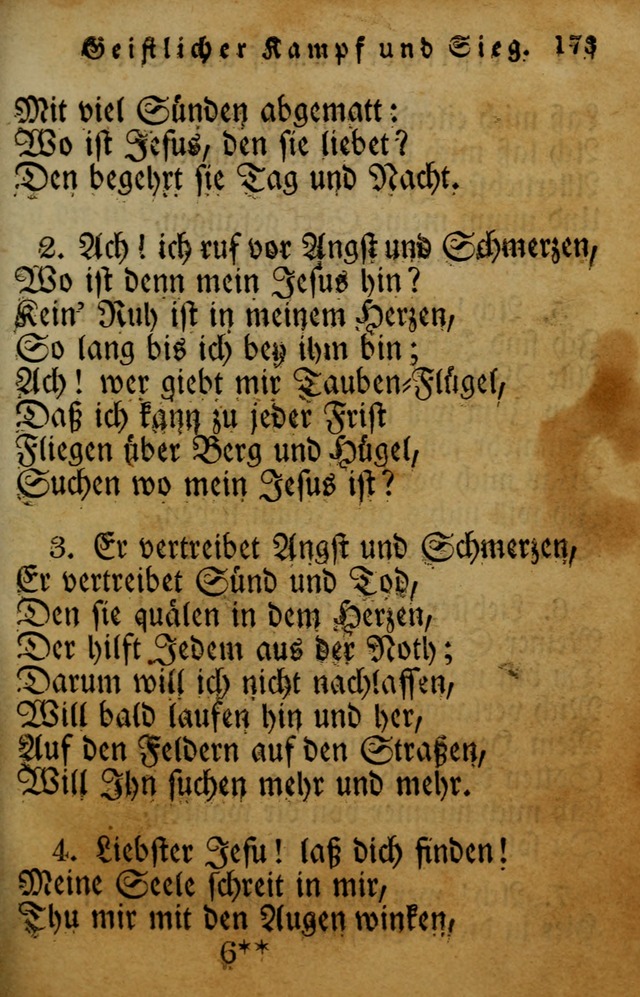 Geistlicher Kampf und Sieg. 173
Mit viel Sünden abgematt:
Wo ist Jesus, den sie liebet?
Den begehrt sie Tag und Nacht.
2. Ach! ich ruf vor Angst und Schmerzen,
Wo ist denn mein Jesus hin?
Kein' Ruh ist in meinem Herzen,
So lang bis ich bey ihm bin;
Ach! wer giebt mir Tauben-Flügel,
Daß ich kann zu jeder Frist
Fliegen über Berg und Hügel,
Suchen wo mein Jesus ist?
3. Er vertreibet Angst und Schmerzen,
Er vertreibet Sünd und Tod,
Den sie quälen in dem Herzen,
Der hilft Jedem aus der Noth;
Darum will ich nicht nachlassen,
Will bald laufen hin und her,
Auf den Feldern auf den Straßen,
Will Ihn suchen mehr und mehr.
4. Liebster Jesu! laß dich finden!
Meine Seele schreit in mir,
Thu mir mit den Augen winken,
6**